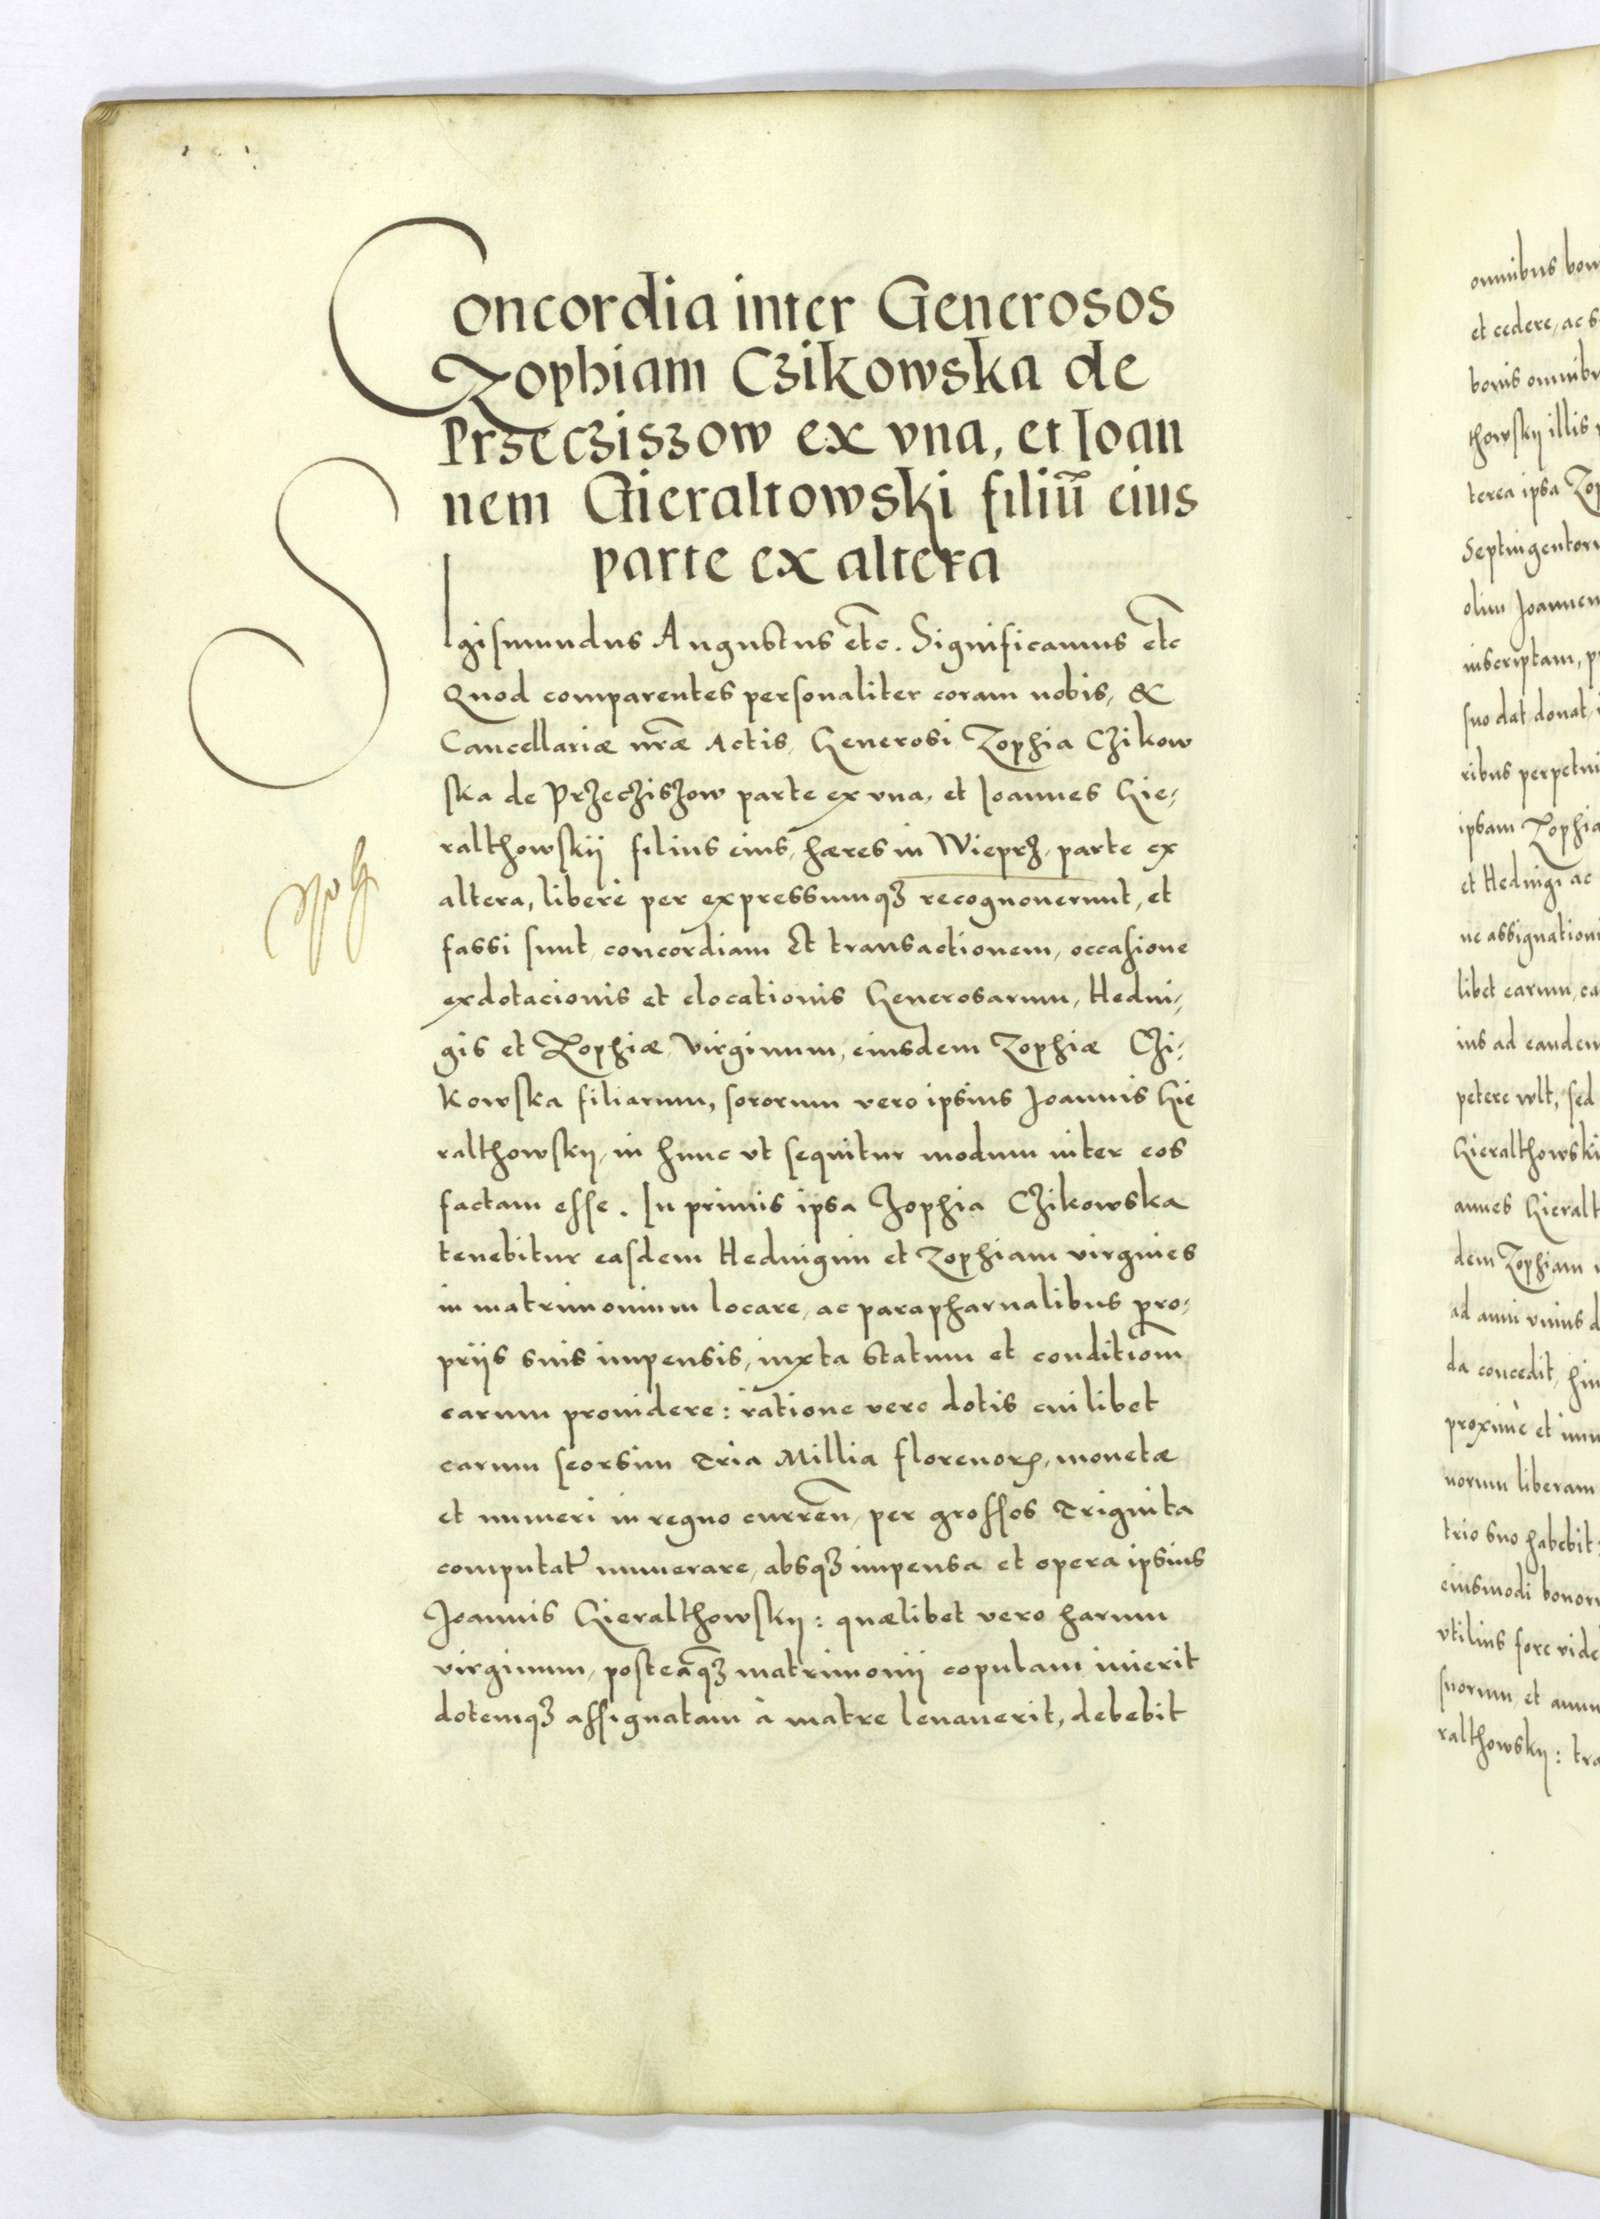 Concordia inter Generosos
Zophiam Czikowska de
Przecziszow ex vna, et Ioan
nem Gieraltowski filiū eius
parte ex altera
SIgismundus Augustus etc. Significamus etc
Quod comparentes personaliter coram nobis, &
Cancellariæ nr̃æ Actis, Generosi Zophia Czikow
ska de Przecziszow parte ex vna, et Ioannes Gie,
ralthowskij filius eius, hæres in Wieprz, parte ex
altera, liberè per expressumqȝ recognouerunt, et
fassi sunt, concordiam Et transactionem, occasione
exdotacionis et elocationis Generosarum, Hedui,
gis et Zophiæ virginum, eiusdem Zophiæ Czi,
kowska filiarum, sororum vero ipsius Joannis Gie
ralthowskij, in hunc vt sequitur modum inter eos
factam esse. In primis ipsa Zophia Czikowska
tenebitur easdem Heduigim et Zophiam virgines
in matrimonium locare, ac parapharnalibus pro,
prijs suis impensis, iuxta statum et conditiom̃
earum prouidere: ratione vero dotis cuilibet
earum seorsim Tria Millia florenorꝝ, monetæ
et numeri in regno curreñ, per grossos Triginta
computat̃ numerare, absqȝ impensa et opera ipsius
Joannis Gieralthowskij: quælibet vero harum
virginum, posteaq̃ȝ matrimonij copulam inierit
dotemqȝ assignatam à matre leuauerit, debebit
omnibus
et cedere, ac
bonis
thowskij illis
terea ipsa
olim
inscriptam,
suo dat, donat,
ribus
ipsam Zophia
et Heduigi ac
libet earum,
ius ad
petere wlt, sed
Gieralthowski
dem Zophiam
ad anni vnius
da concedit,
proximè et
norum liberam
trio suo habebit
eiusmodi
vtilius fore
suorum, et
ralthowskij: